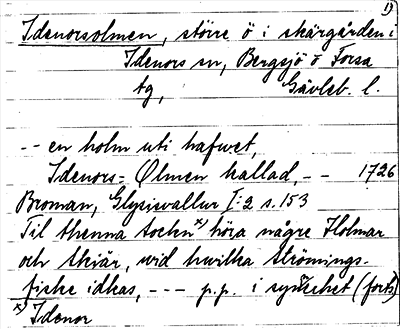 13
Idenorsolmen, större ö i skärgården i
Idenors sn, Bergsjö o Forsa
tg, Gävleb. l.
-- en holm uti hafwet,
Idenors= Ølmen kallad, -- 1726
Broman, Glysisvallur I:2 s. 153
Til thenna sockn x) höra någre Holmar
och Skiär, wid hwilka strömings-
fiske idkas, --- p.p. i synnerhet (forts)
x) Idenor